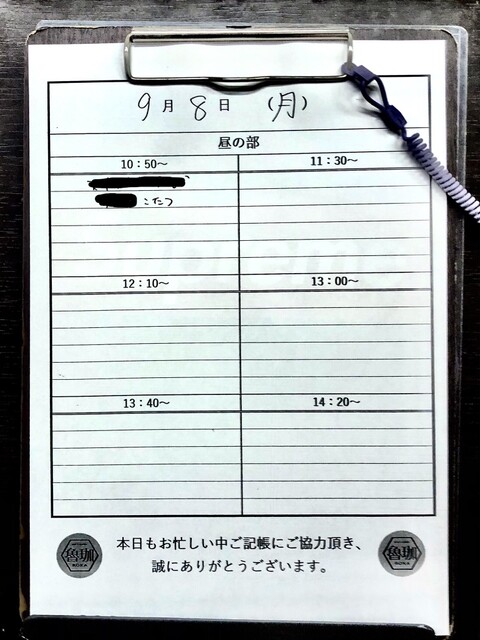 9月8日 (月)
昼の部
10:50〜 11:30〜
こたつ
12:10〜 13:00〜
13:40〜 14:20〜
本日もお忙しい中ご記帳にご協力頂き、
誠にありがとうございます。
魯珈 魯珈
ROKA ROKA